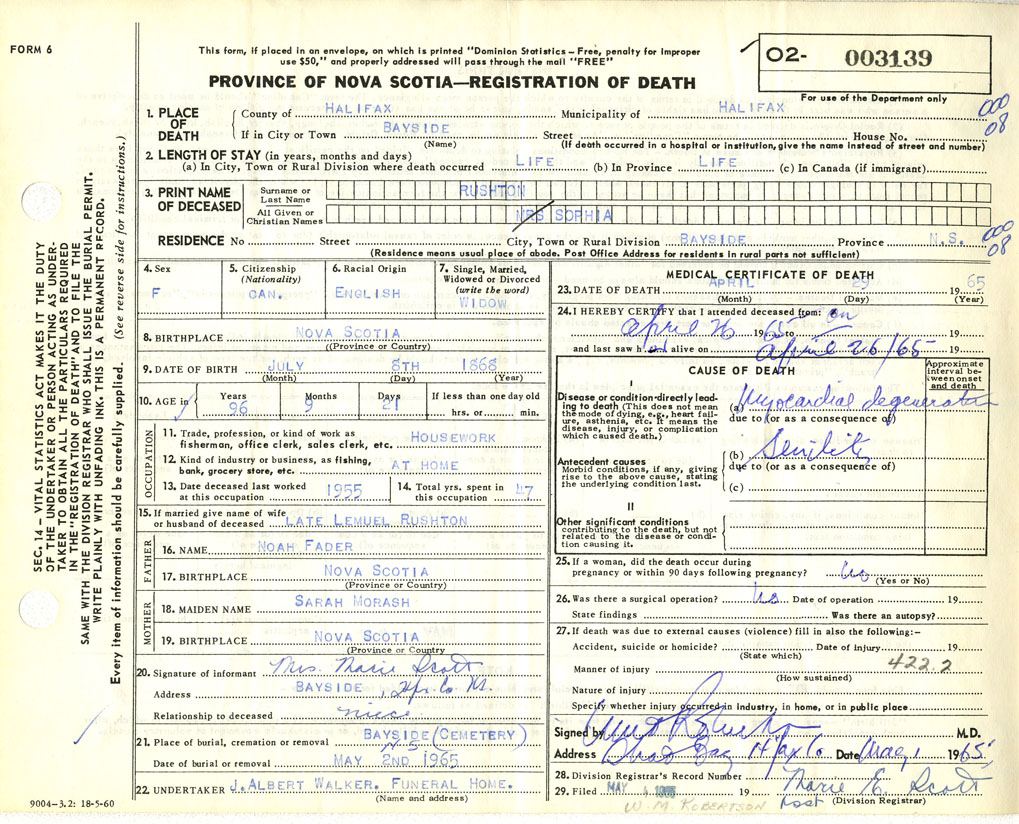 FORM 6
This form, if placed in an envelope, on which is printed "Dominion Statistics – Free, penalty for improper
use $50," and properly addressed will pass through the mail "FREE"
PROVINCE OF NOVA SCOTIA—REGISTRATION OF DEATH
02- 003139
For use of the Department only
000
08
1. PLACE OF DEATH
County of HALIFAX Municipality of HALIFAX
If in City or Town BAYSIDE Street House No.
(Name) (If death occurred in a hospital or institution, give the name instead of street and number)
2. LENGTH OF STAY (in years, months and days)
(a) In City, Town or Rural Division where death occurred LIFE (b) In Province LIFE (c) In Canada (if immigrant)
3. PRINT NAME OF DECEASED
Surname or Last Name RUSHTON
All Given or Christian Names MRS SOPHIA
RESIDENCE No Street City, Town or Rural Division BAYSIDE Province N.S.
000
08
(Residence means usual place of abode. Post Office Address for residents in rural parts not sufficient)
4. Sex
F
5. Citizenship
(Nationality)
CAN.
6. Racial Origin
ENGLISH
7. Single, Married,
Widowed or Divorced
(write the word)
WIDOW
8. BIRTHPLACE NOVA SCOTIA
(Province or Country)
9. DATE OF BIRTH JULY 8TH 1868
(Month) (Day) (Year)
10. AGE in Years Months Days If less than one day old
96 9 21 hrs. or min.
OCCUPATION
11. Trade, profession, or kind of work as
fisherman, office clerk, sales clerk, etc. HOUSEWORK
12. Kind of industry or business, as fishing,
bank, grocery store, etc. AT HOME
13. Date deceased last worked
at this occupation 1955
14. Total yrs. spent in
this occupation 47
15. If married give name of wife
or husband of deceased LATE LEMUEL RUSHTON
FATHER
16. NAME NOAH FADER
17. BIRTHPLACE NOVA SCOTIA
(Province or Country)
MOTHER
18. MAIDEN NAME SARAH MORASH
19. BIRTHPLACE NOVA SCOTIA
(Province or Country
20. Signature of informant Mrs. Marie Scott
Address BAYSIDE, Hfx. Co. NS.
Relationship to deceased niece
21. Place of burial, cremation or removal BAYSIDE (CEMETERY)
N.S.
Date of burial or removal MAY 2ND 1965
22. UNDERTAKER J. ALBERT WALKER. FUNERAL HOME.
(Name and address)
MEDICAL CERTIFICATE OF DEATH
23. DATE OF DEATH APRIL 29 1965
(Month) (Day) (Year)
24. I HEREBY CERTIFY that I attended deceased from: on
April 26 1965 to 19
and last saw h alive on April 26/65 19
CAUSE OF DEATH
Approximate
interval be-
tween onset
and death
I
Disease or condition directly lead-
ing to death (This does not mean
the mode of dying, e.g., heart fail-
ure, asthenia, etc. It means the
disease, injury, or complication
which caused death.)
(a) Myocardial degeneration
due to (or as a consequence of)
Antecedent causes
Morbid conditions, if any, giving
rise to the above cause, stating
the underlying condition last.
(b) Senility
due to (or as a consequence of)
(c)
II
Other significant conditions
contributing to the death, but not
related to the disease or condi-
tion causing it.
25. If a woman, did the death occur during
pregnancy or within 90 days following pregnancy? No
(Yes or No)
26. Was there a surgical operation? No Date of operation 19
State findings Was there an autopsy?
27. If death was due to external causes (violence) fill in also the following:–
Accident, suicide or homicide? Date of injury 19
(State which) 422.2
Manner of injury
(How sustained)
Nature of injury
Specify whether injury occurred in industry, in home, or in public place
Signed by M.D.
Address Bay Hfax Co Date May 1 1965
28. Division Registrar's Record Number
29. Filed MAY 4 1965 19 Marie E. Scott
W. M. ROBERTSON (Division Registrar)
SEC. 14 – VITAL STATISTICS ACT MAKES IT THE DUTY
OF THE UNDERTAKER OR PERSON ACTING AS UNDER-
TAKER TO OBTAIN ALL THE PARTICULARS REQUIRED
IN THE "REGISTRATION OF DEATH" AND TO FILE THE
SAME WITH THE DIVISION REGISTRAR WHO SHALL ISSUE THE BURIAL PERMIT.
WRITE PLAINLY WITH UNFADING INK. THIS IS A PERMANENT RECORD.
Every item of information should be carefully supplied. (See reverse side for instructions.)
9004-3.2: 18-5-60